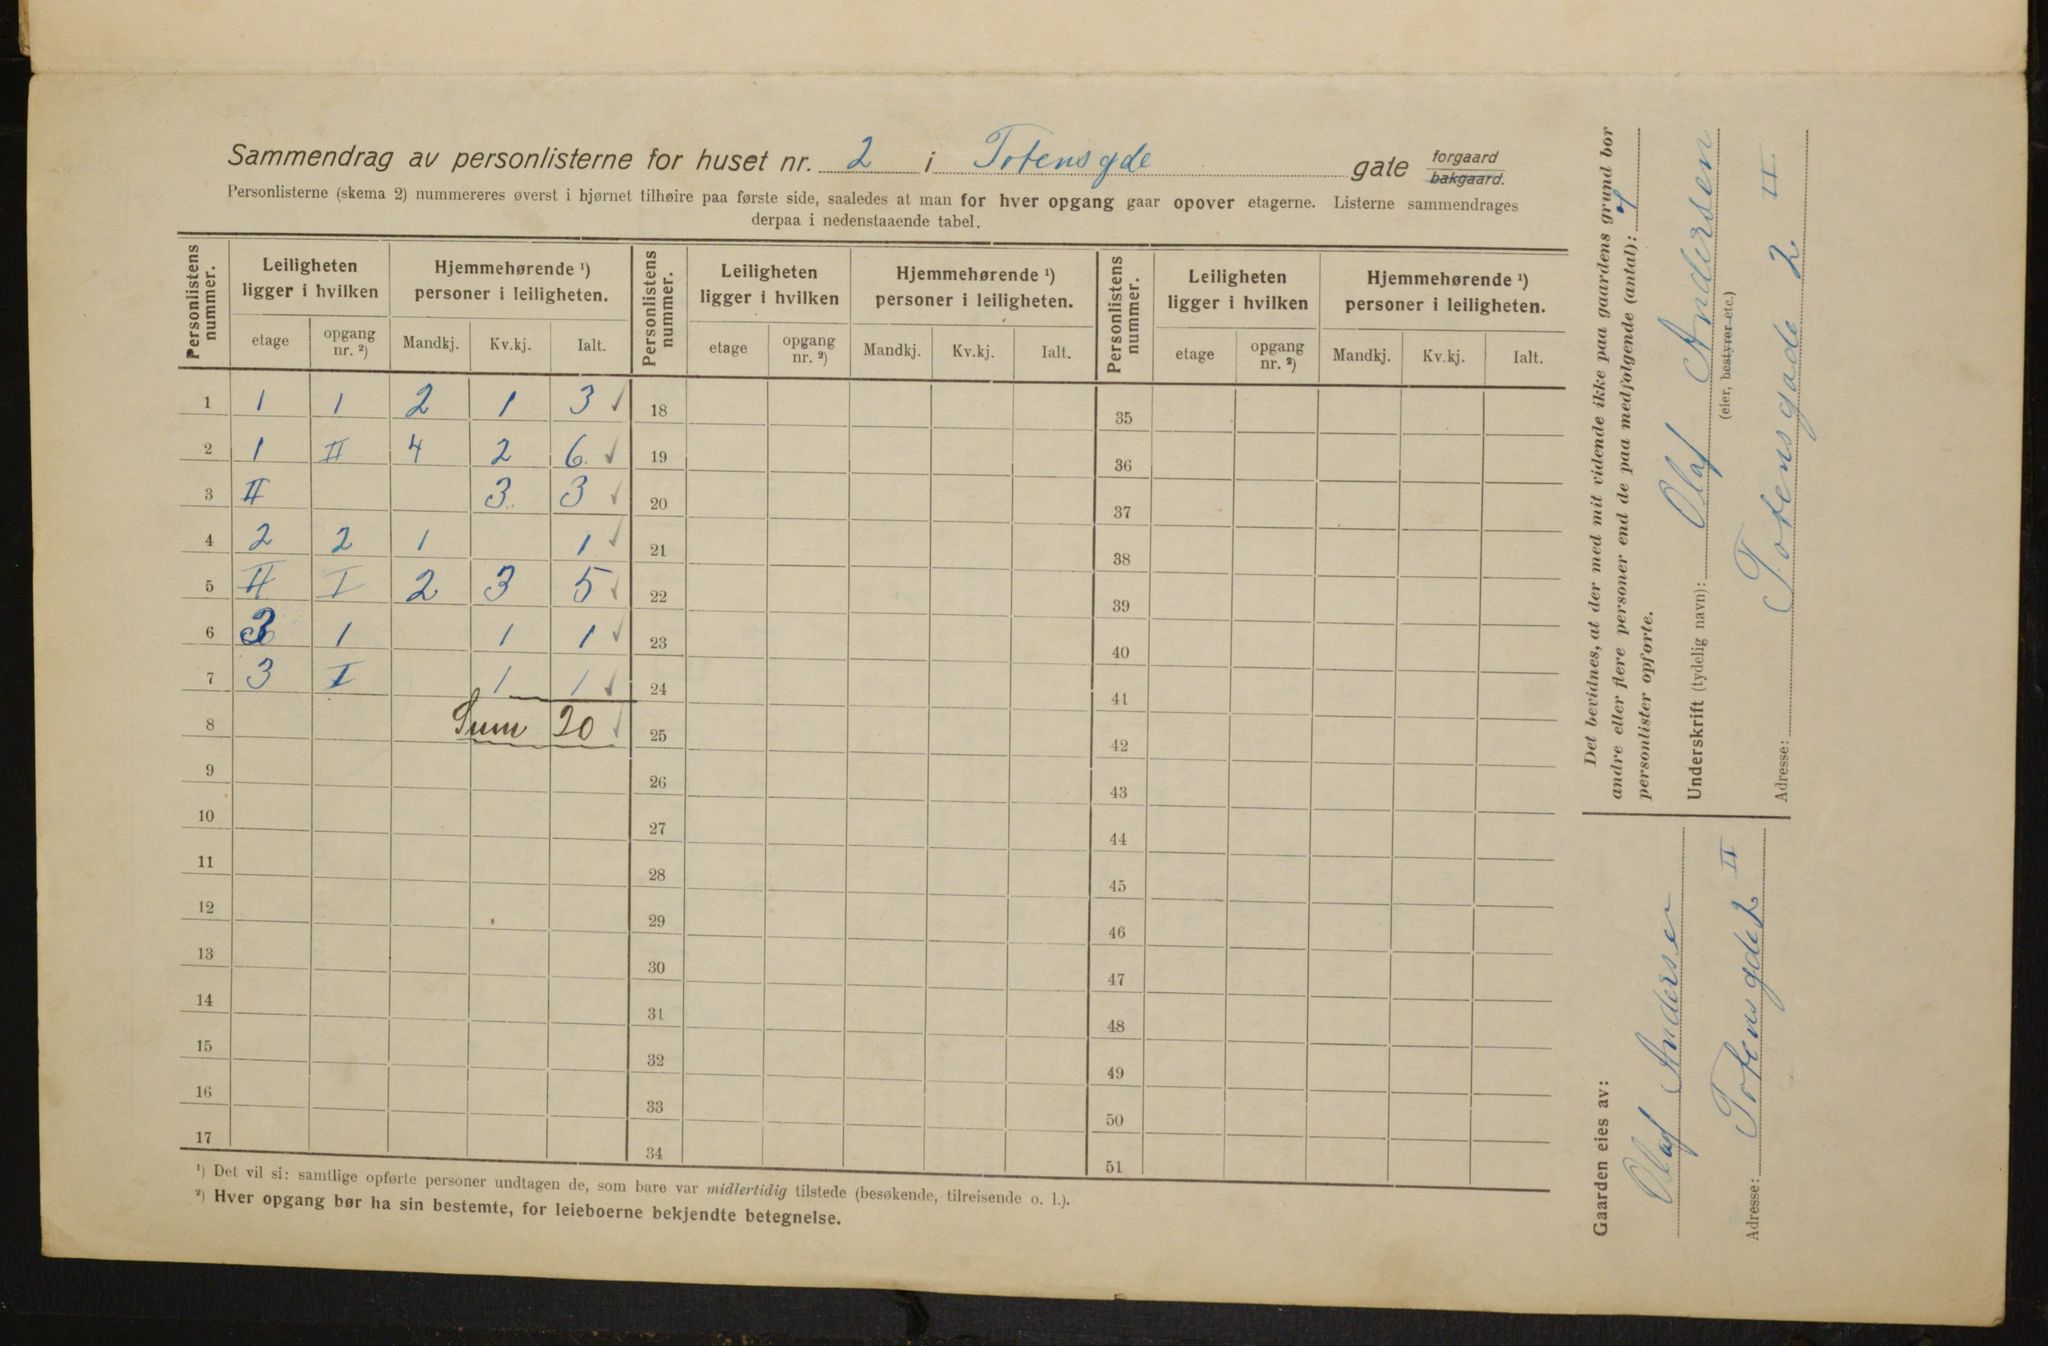 Sammendrag av personlisterne for huset nr. 2 i Totensgde gate forgaard bakgaard.
Personlisterne (skema 2) nummereres øverst i hjørnet tilhøire paa første side, saaledes at man for hver opgang gaar opover etagerne. Listerne sammendrages
derpaa i nedenstaaende tabel.
Personlistens nummer. Leiligheten ligger i hvilken Hjemmehørende ¹) personer i leiligheten. Personlistens nummer. Leiligheten ligger i hvilken Hjemmehørende ¹) personer i leiligheten. Personlistens nummer. Leiligheten ligger i hvilken Hjemmehørende ¹) personer i leiligheten.
etage opgang nr. ²) Mandkj. Kv.kj. Ialt. etage opgang nr. ²) Mandkj. Kv.kj. Ialt. etage opgang nr. ²) Mandkj. Kv.kj. Ialt.
1 1 1 2 1 3 ✓ 18 35
2 1 II 4 2 6. ✓ 19 36
3 II 3. 3 ✓ 20 37
4 2 2 1 1 ✓ 21 38
5 II I 2 3 5 ✓ 22 39
6 3 1 1 1 ✓ 23 40
7 3 I 1 1 ✓ 24 41
8 Sum 20 ✓ 25 42
9 26 43
10 27 44
11 28 45
12 29 46
13 30 47
14 31 48
15 32 49
16 33 50
17 34 51
¹) Det vil si: samtlige opførte personer undtagen de, som bare var midlertidig tilstede (besøkende, tilreisende o. l.).
²) Hver opgang bør ha sin bestemte, for leieboerne bekjendte betegnelse.
Det bevidnes, at der med mit vidende ikke paa gaardens grund bor
andre eller flere personer end de paa medfølgende (antal): 7
personlister opførte.
Underskrift (tydelig navn): Olaf Andersen
(eier, bestyrer etc.)
Adresse: Totensgade 2 II
Gaarden eies av:
Olaf Andersen
Adresse: Totensgde 2 II